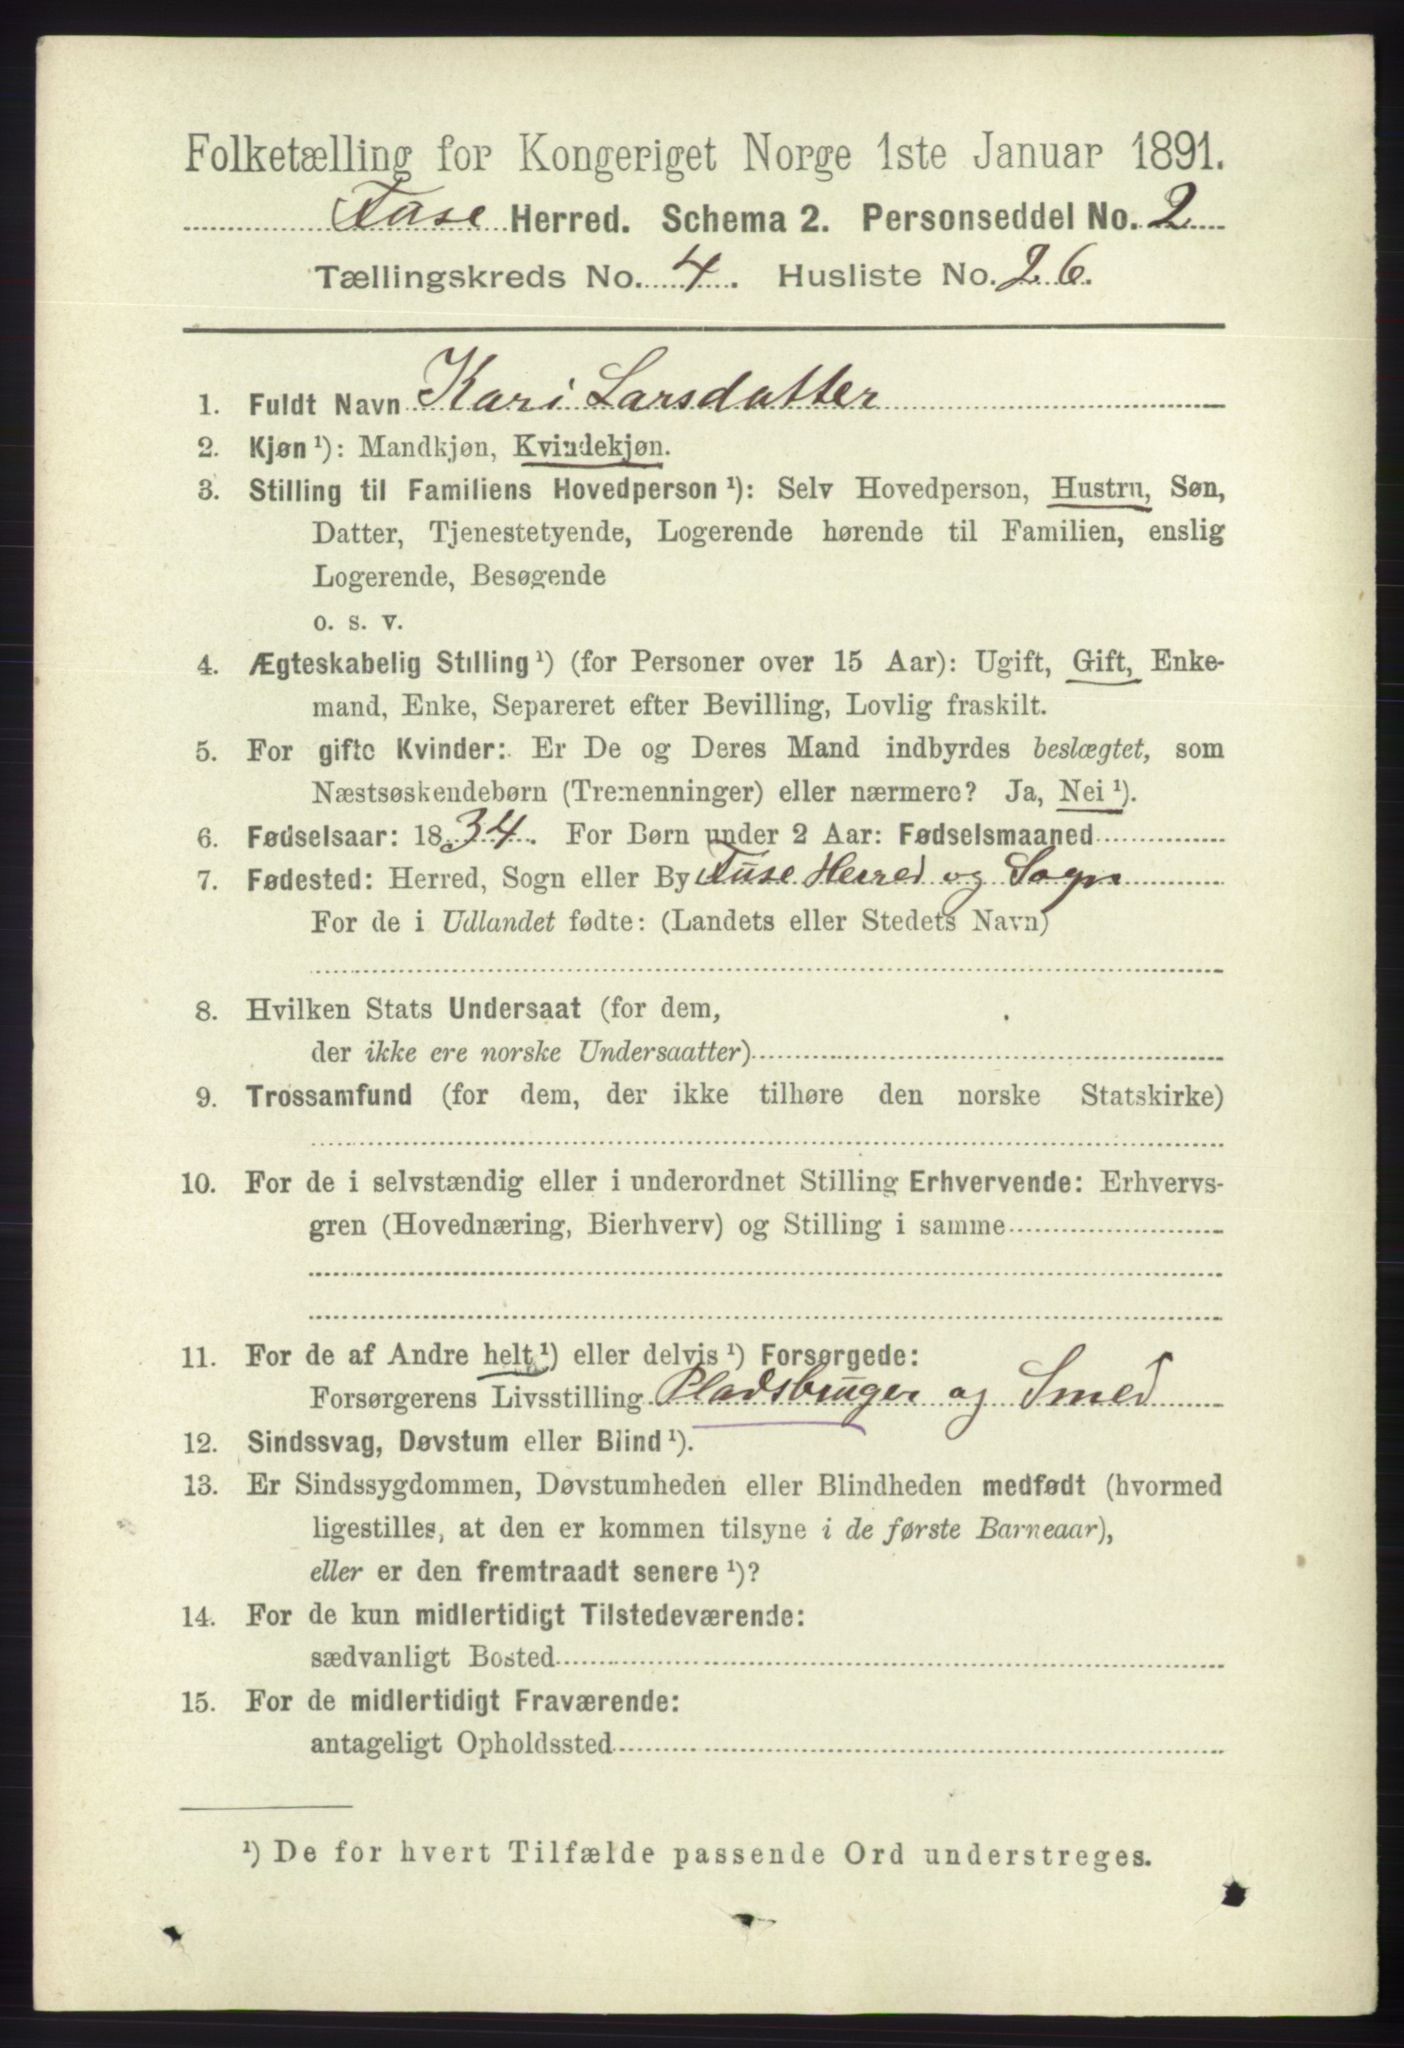 Folketælling for Kongeriget Norge 1ste Januar 1891.
Fuse Herred. Schema 2. Personseddel No. 2
Tællingskreds No. 4. Husliste No. 26.
1. Fuldt Navn Kari Larsdatter
2. Kjøn ¹): Mandkjøn, Kvindekjøn.
3. Stilling til Familiens Hovedperson ¹): Selv Hovedperson, Hustru, Søn,
Datter, Tjenestetyende, Logerende hørende til Familien, enslig
Logerende, Besøgende
o. s. v.
4. Ægteskabelig Stilling ¹) (for Personer over 15 Aar): Ugift, Gift, Enke-
mand, Enke, Separeret efter Bevilling, Lovlig fraskilt.
5. For gifte Kvinder: Er De og Deres Mand indbyrdes beslægtet, som
Næstsøskendebørn (Tremenninger) eller nærmere? Ja, Nei ¹).
6. Fødselsaar: 1834. For Børn under 2 Aar: Fødselsmaaned
7. Fødested: Herred, Sogn eller By Fuse Herred og Sogn
For de i Udlandet fødte: (Landets eller Stedets Navn)
8. Hvilken Stats Undersaat (for dem,
der ikke ere norske Undersaatter)
9. Trossamfund (for dem, der ikke tilhøre den norske Statskirke)
10. For de i selvstændig eller i underordnet Stilling Erhvervende: Erhvervs-
gren (Hovednæring, Bierhverv) og Stilling i samme
11. For de af Andre helt ¹) eller delvis ¹) Forsørgede:
Forsørgerens Livsstilling Pladsbruger og Smed
12. Sindssvag, Døvstum eller Blind ¹).
13. Er Sindssygdommen, Døvstumheden eller Blindheden medfødt (hvormed
ligestilles, at den er kommen tilsyne i de første Barneaar),
eller er den fremtraadt senere ¹)?
14. For de kun midlertidigt Tilstedeværende:
sædvanligt Bosted
15. For de midlertidigt Fraværende:
antageligt Opholdssted
¹) De for hvert Tilfælde passende Ord understreges.